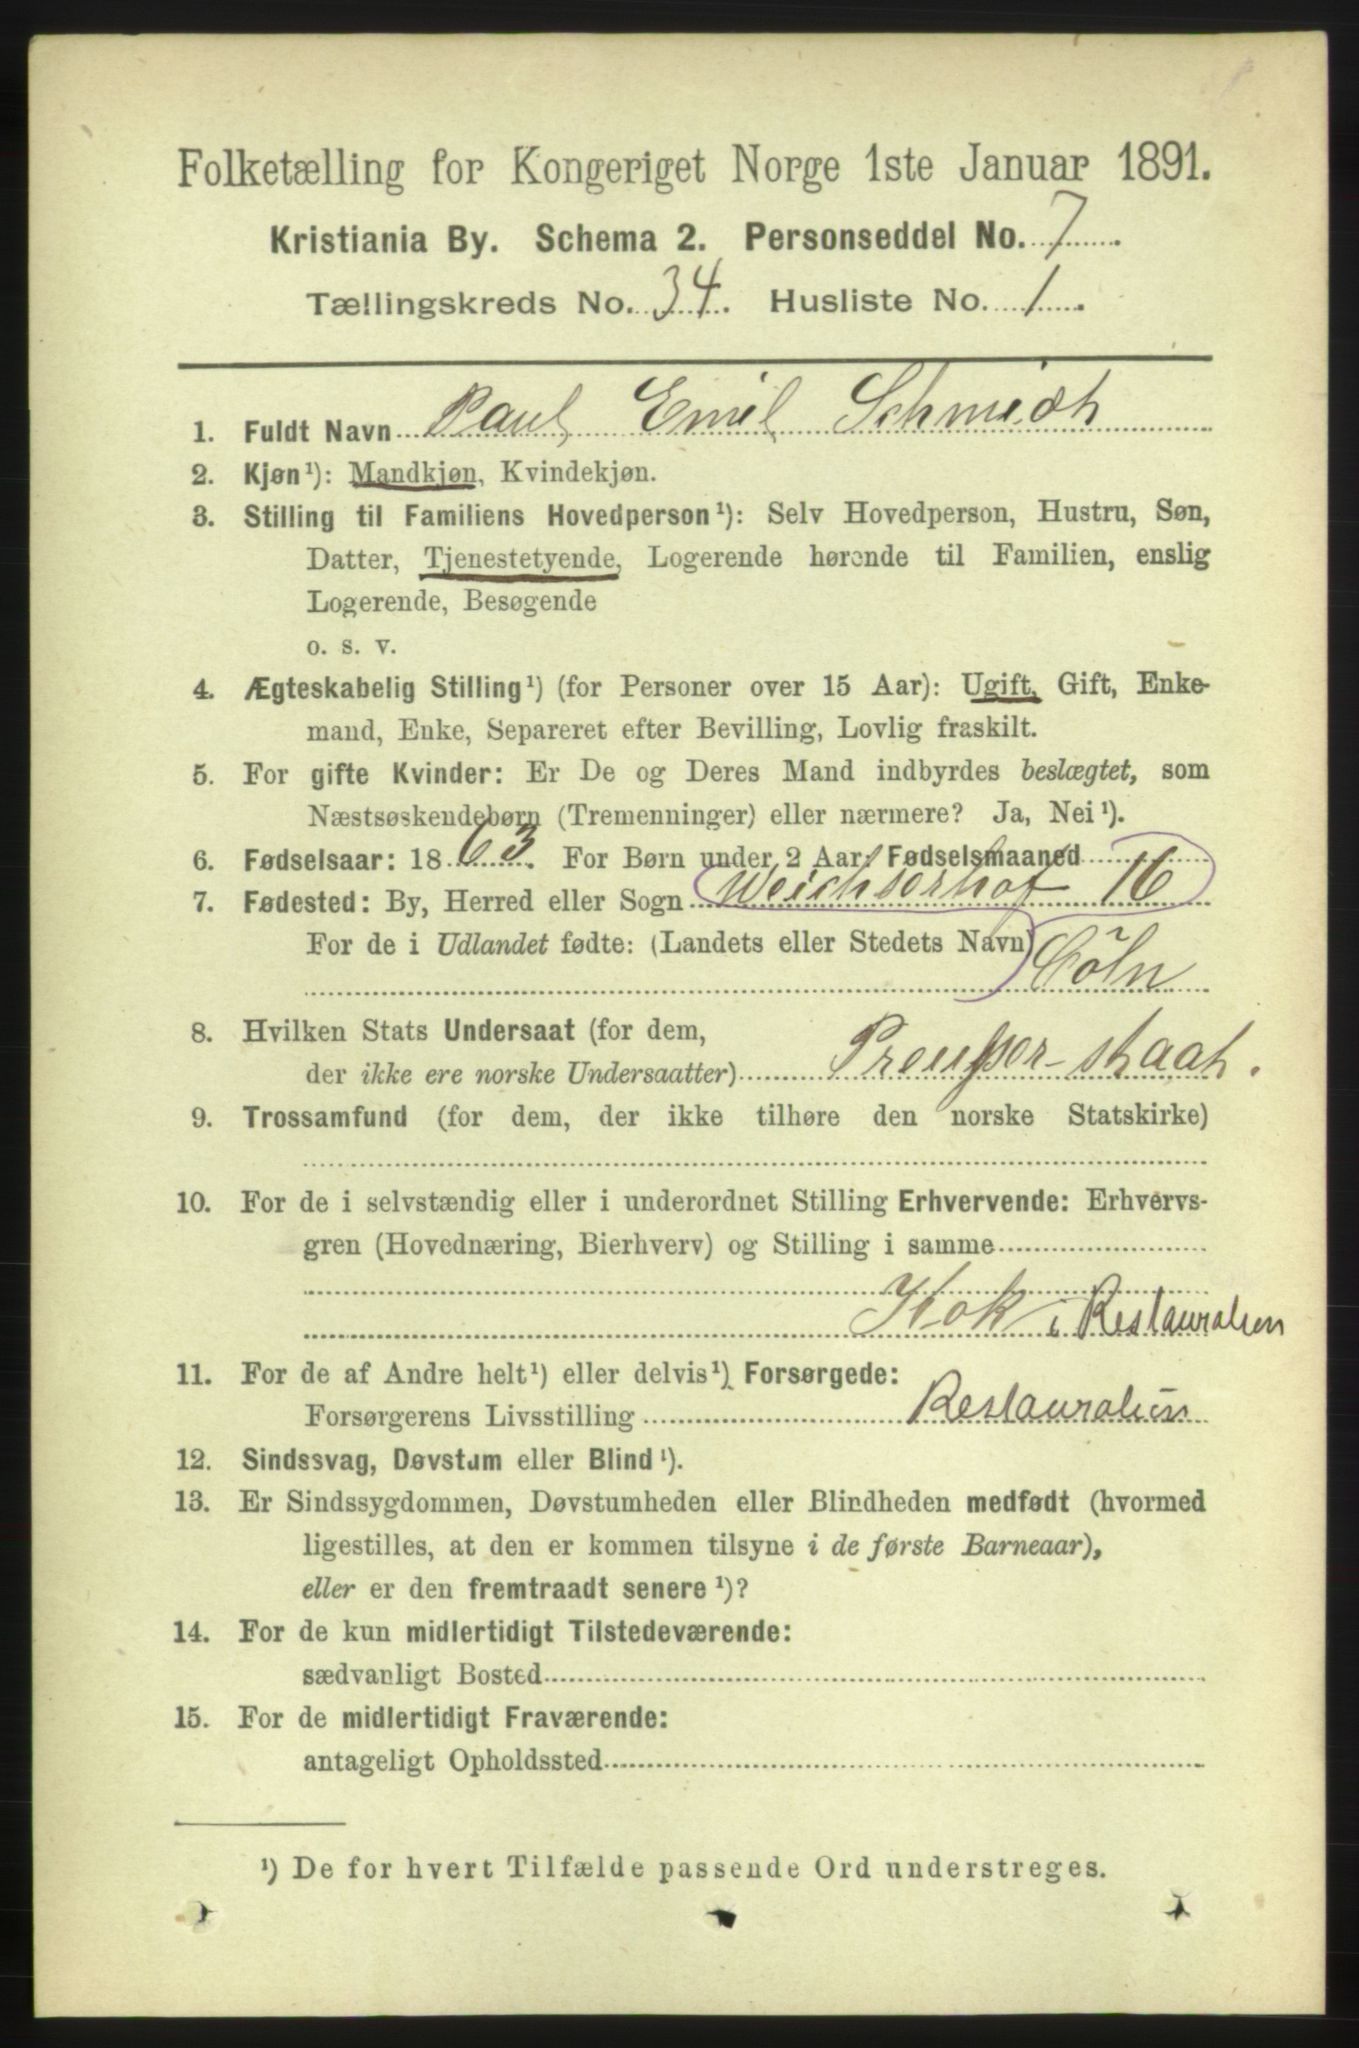 Folketælling for Kongeriget Norge 1ste Januar 1891.
Kristiania By. Schema 2. Personseddel No. 7.
Tællingskreds No. 34. Husliste No. 1.
1. Fuldt Navn Paul Emil Schmidt
2. Kjøn¹): Mandkjøn, Kvindekjøn.
3. Stilling til Familiens Hovedperson¹): Selv Hovedperson, Hustru, Søn,
Datter, Tjenestetyende, Logerende hørende til Familien, enslig
Logerende, Besøgende
o. s. v.
4. Ægteskabelig Stilling¹) (for Personer over 15 Aar): Ugift, Gift, Enke-
mand, Enke, Separeret efter Bevilling, Lovlig fraskilt.
5. For gifte Kvinder: Er De og Deres Mand indbyrdes beslægtet, som
Næstsøskendebørn (Tremenninger) eller nærmere? Ja, Nei¹).
6. Fødselsaar: 1863. For Børn under 2 Aar: Fødselsmaaned
7. Fødested: By, Herred eller Sogn Weichserhof 16
For de i Udlandet fødte: (Landets eller Stedets Navn)
Cöln
8. Hvilken Stats Undersaat (for dem,
der ikke ere norske Undersaatter) Preußer-staat.
9. Trossamfund (for dem, der ikke tilhøre den norske Statskirke)
10. For de i selvstændig eller i underordnet Stilling Erhvervende: Erhvervs-
gren (Hovednæring, Bierhverv) og Stilling i samme
Kok i Restauration
11. For de af Andre helt¹) eller delvis¹) Forsørgede:
Forsørgerens Livsstilling Restauration
12. Sindssvag, Døvstum eller Blind¹).
13. Er Sindssygdommen, Døvstumheden eller Blindheden medfødt (hvormed
ligestilles, at den er kommen tilsyne i de første Barneaar),
eller er den fremtraadt senere¹)?
14. For de kun midlertidigt Tilstedeværende:
sædvanligt Bosted
15. For de midlertidigt Fraværende:
antageligt Opholdssted
¹) De for hvert Tilfælde passende Ord understreges.